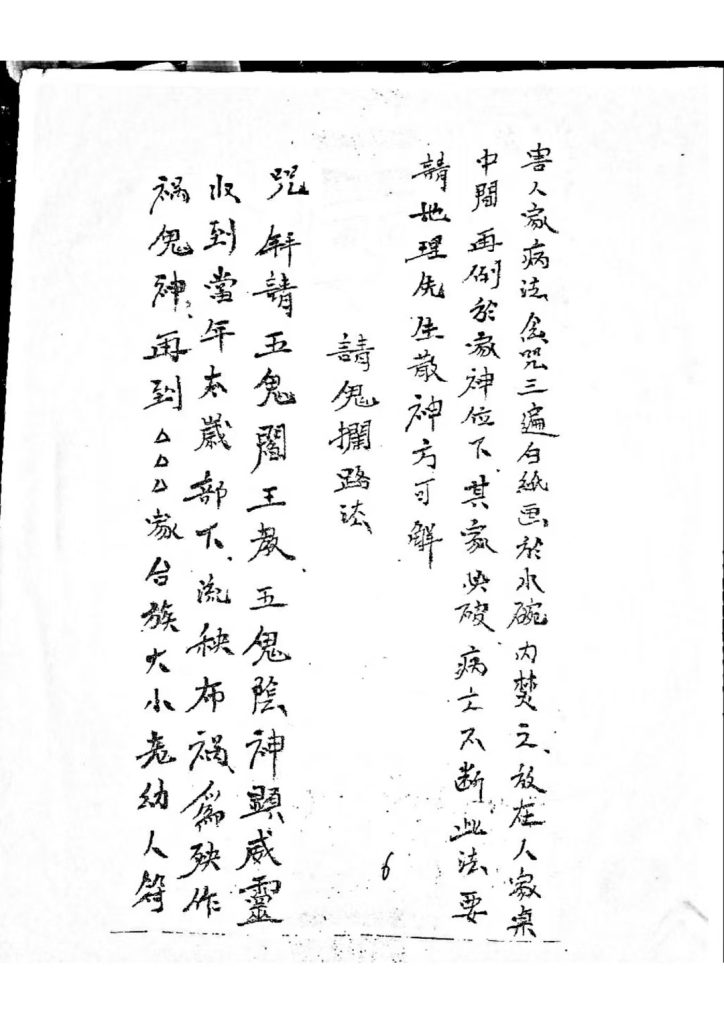 害人家病法念咒三遍白紙画於水碗内焚之放在人家桌
中間再倒於家神位下其家必破病亡不断此法要
請地理先生散神方可解
請鬼攔路法
咒 奉請五鬼閻王教五鬼陰神顕威靈
收到當年太歲部下流秧布禍為殃作
禍鬼神再到△△△家合族大小老幼人等
6